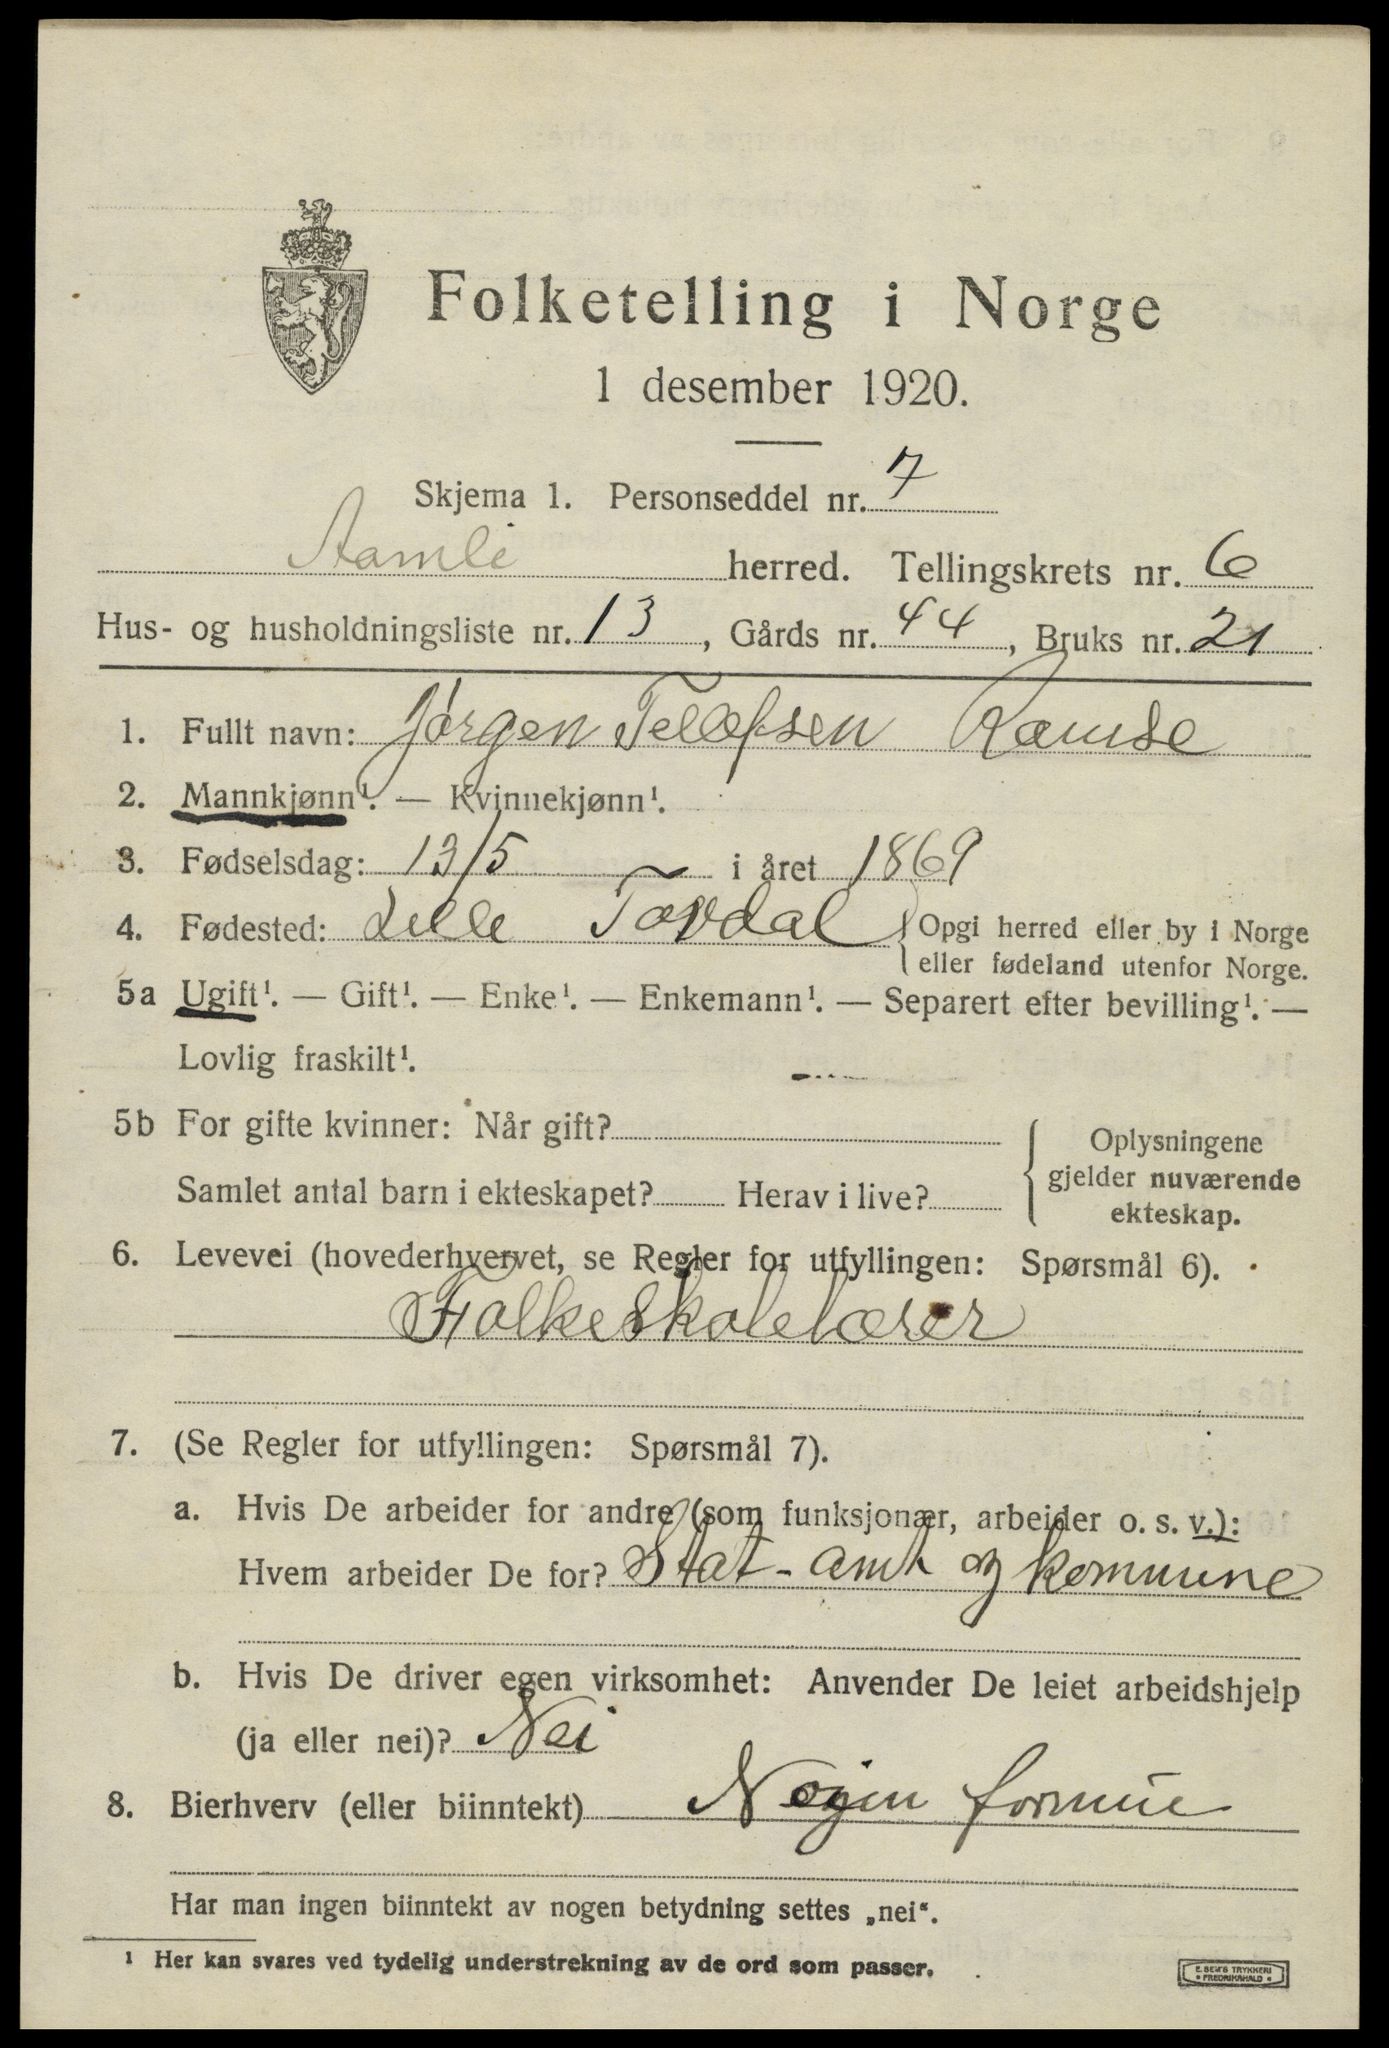 Folketelling i Norge
1 desember 1920.
Skjema 1. Personseddel nr. 7
Aamli herred. Tellingskrets nr. 6
Hus- og husholdningsliste nr. 13, Gårds nr. 44, Bruks nr. 21
1. Fullt navn: Jørgen Tellefsen Ramse
2. Mannkjønn¹. — Kvinnekjønn¹.
3. Fødselsdag: 13/5 i året 1869
4. Fødested: Lille Tovdal { Opgi herred eller by i Norge
eller fødeland utenfor Norge.
5a Ugift¹. — Gift¹. — Enke¹. — Enkemann¹. — Separert efter bevilling¹. —
Lovlig fraskilt¹.
5b For gifte kvinner: Når gift?
Samlet antal barn i ekteskapet? Herav i live?
Oplysningene
gjelder nuværende
ekteskap.
6. Levevei (hovederhvervet, se Regler for utfyllingen: Spørsmål 6).
Folkeskolelærer
7. (Se Regler for utfyllingen: Spørsmål 7).
a. Hvis De arbeider for andre (som funksjonær, arbeider o. s. v.):
Hvem arbeider De for? Stat- amt og kommune
b. Hvis De driver egen virksomhet: Anvender De leiet arbeidshjelp
(ja eller nei)? Nei
8. Bierhverv (eller biinntekt) Nogen formue
Har man ingen biinntekt av nogen betydning settes „nei“.
¹ Her kan svares ved tydelig understrekning av de ord som passer.
E. SEM'S TRYKKERI
• FREDRIKSHALD •